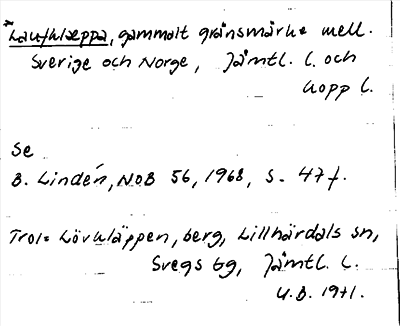 *Laufklæppa, gammalt gränsmärke mell.
Sverige och Norge, Jämtl. l. och
Kopp l.
Se
B. Lindén, NOB 56, 1968, s. 47 f.
Trol= Lövkläppen, berg, Lillhärdals sn,
Svegs tg, Jämtl. l.
U.B. 1971.